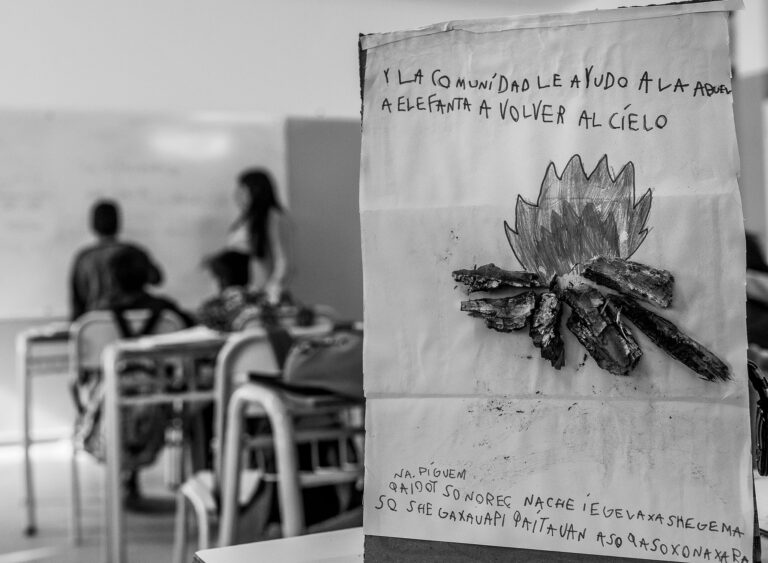 Y LA COMUNÍDAD LE AYUDO A LA ABUEL
A ELEFANTA A VOLVER AL CÍELO
NA. PÍGUEM
QAIDOT SO NOREC NACHE ÍEGELAXASHEGEMA
SQ SHEGAXAUAPI QAÍTAUAN ASO QASOXONAXARA